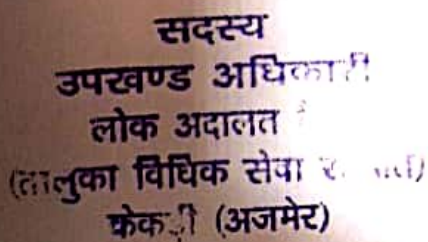 सदस्य
उपखण्ड अधिकारी
लोक अदालत
(तालुका विधिक सेवा
केकड़ी (अजमेर)